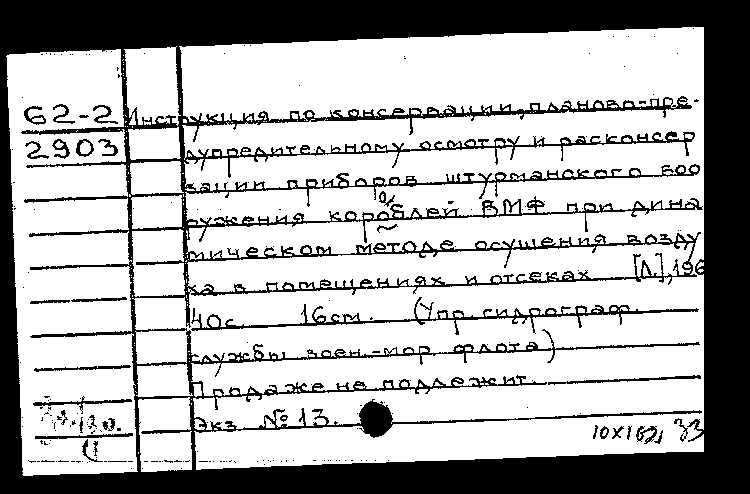 62-2 Инструкция по консервации, планово-пре-
2903 дупредительному осмотру и расконсер
вации приборов штурманского воо
ружения кораблей ВМФ при дина
мическом методе осушения возду
ха в помещениях и отсеках [Л.], 196
40с. 16см. (Упр. гидрограф.
службы воен.-мор. флота)
Продаже не подлежит.
Экз № 13.